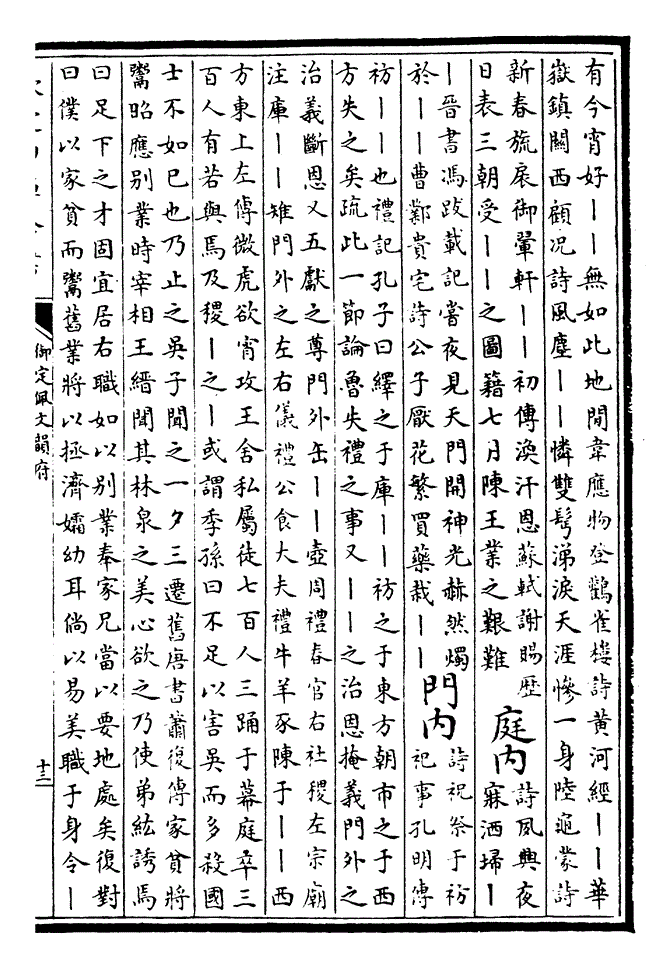 有今宵好丨丨無如此地閒韋應物登鸛雀樓詩黃河經丨丨華
嶽鎮關西顧况詩風塵丨丨憐雙髩涕淚天涯慘一身陸龜蒙詩
新春旒扆御翬軒丨丨初傳渙汗恩蘇軾謝賜歴
日表三朝受丨丨之圖籍七月陳王業之艱難
庭内
詩夙興夜
寐洒埽丨
丨晉書馮跋載記嘗夜見天門開神光赫然燭
於丨丨曹鄴貴宅詩公子厭花繁買藥栽丨丨
門内
詩祝祭于祊
祀事孔明傳
祊丨丨也禮記孔子曰繹之于庫丨丨祊之于東方朝市之于西
方失之矣疏此一節論魯失禮之事又丨丨之治恩掩義門外之
治義斷恩又五獻之尊門外缶丨丨壺周禮春官右社稷左宗廟
注庫丨丨雉門外之左右儀禮公食大夫禮牛羊豕陳于丨丨西
方東上左傳微虎欲宵攻王舍私屬徒七百人三踊于幕庭卒三
百人有若與焉及稷丨之丨或謂季孫曰不足以害吳而多殺國
士不如已也乃止之吳子聞之一夕三遷舊唐書蕭復傳家貧將
鬻昭應别業時宰相王縉聞其林泉之美心欲之乃使弟紘誘焉
曰足下之才固宜居右職如以别業奉家兄當以要地處矣復對
曰僕以家貧而鬻舊業將以拯濟孀幼耳倘以易美職于身令丨
御定佩文韻府
十三